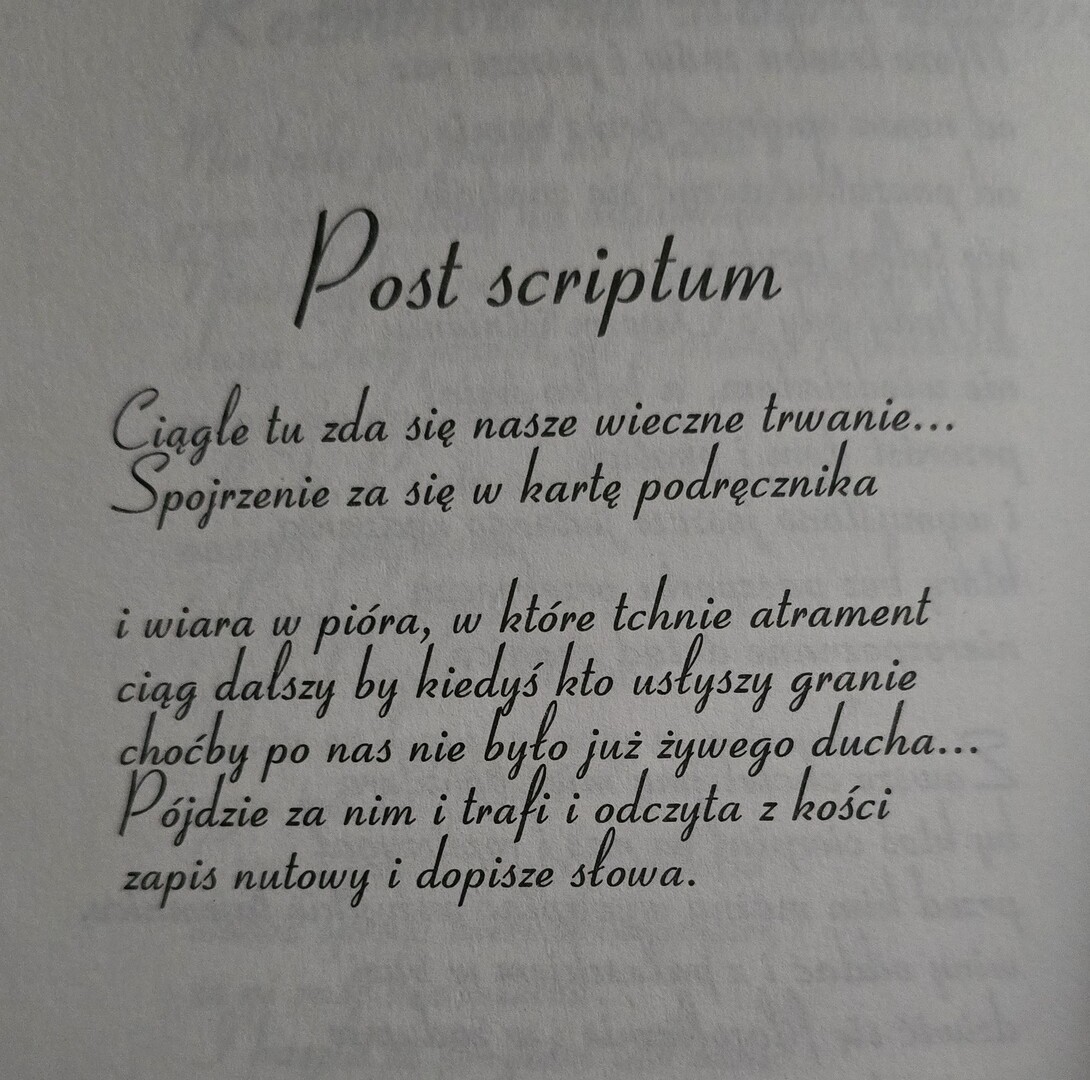 Post scriptum
Ciągle tu zda się nasze wieczne trwanie...
Spojrzenie za się w kartę podręcznika
i wiara w pióra, w które tchnie atrament
ciąg dalszy by kiedyś kto usłyszy granie
choćby po nas nie było już żywego ducha...
Pójdzie za nim i trafi i odczyta z kości
zapis nutowy i dopisze słowa.